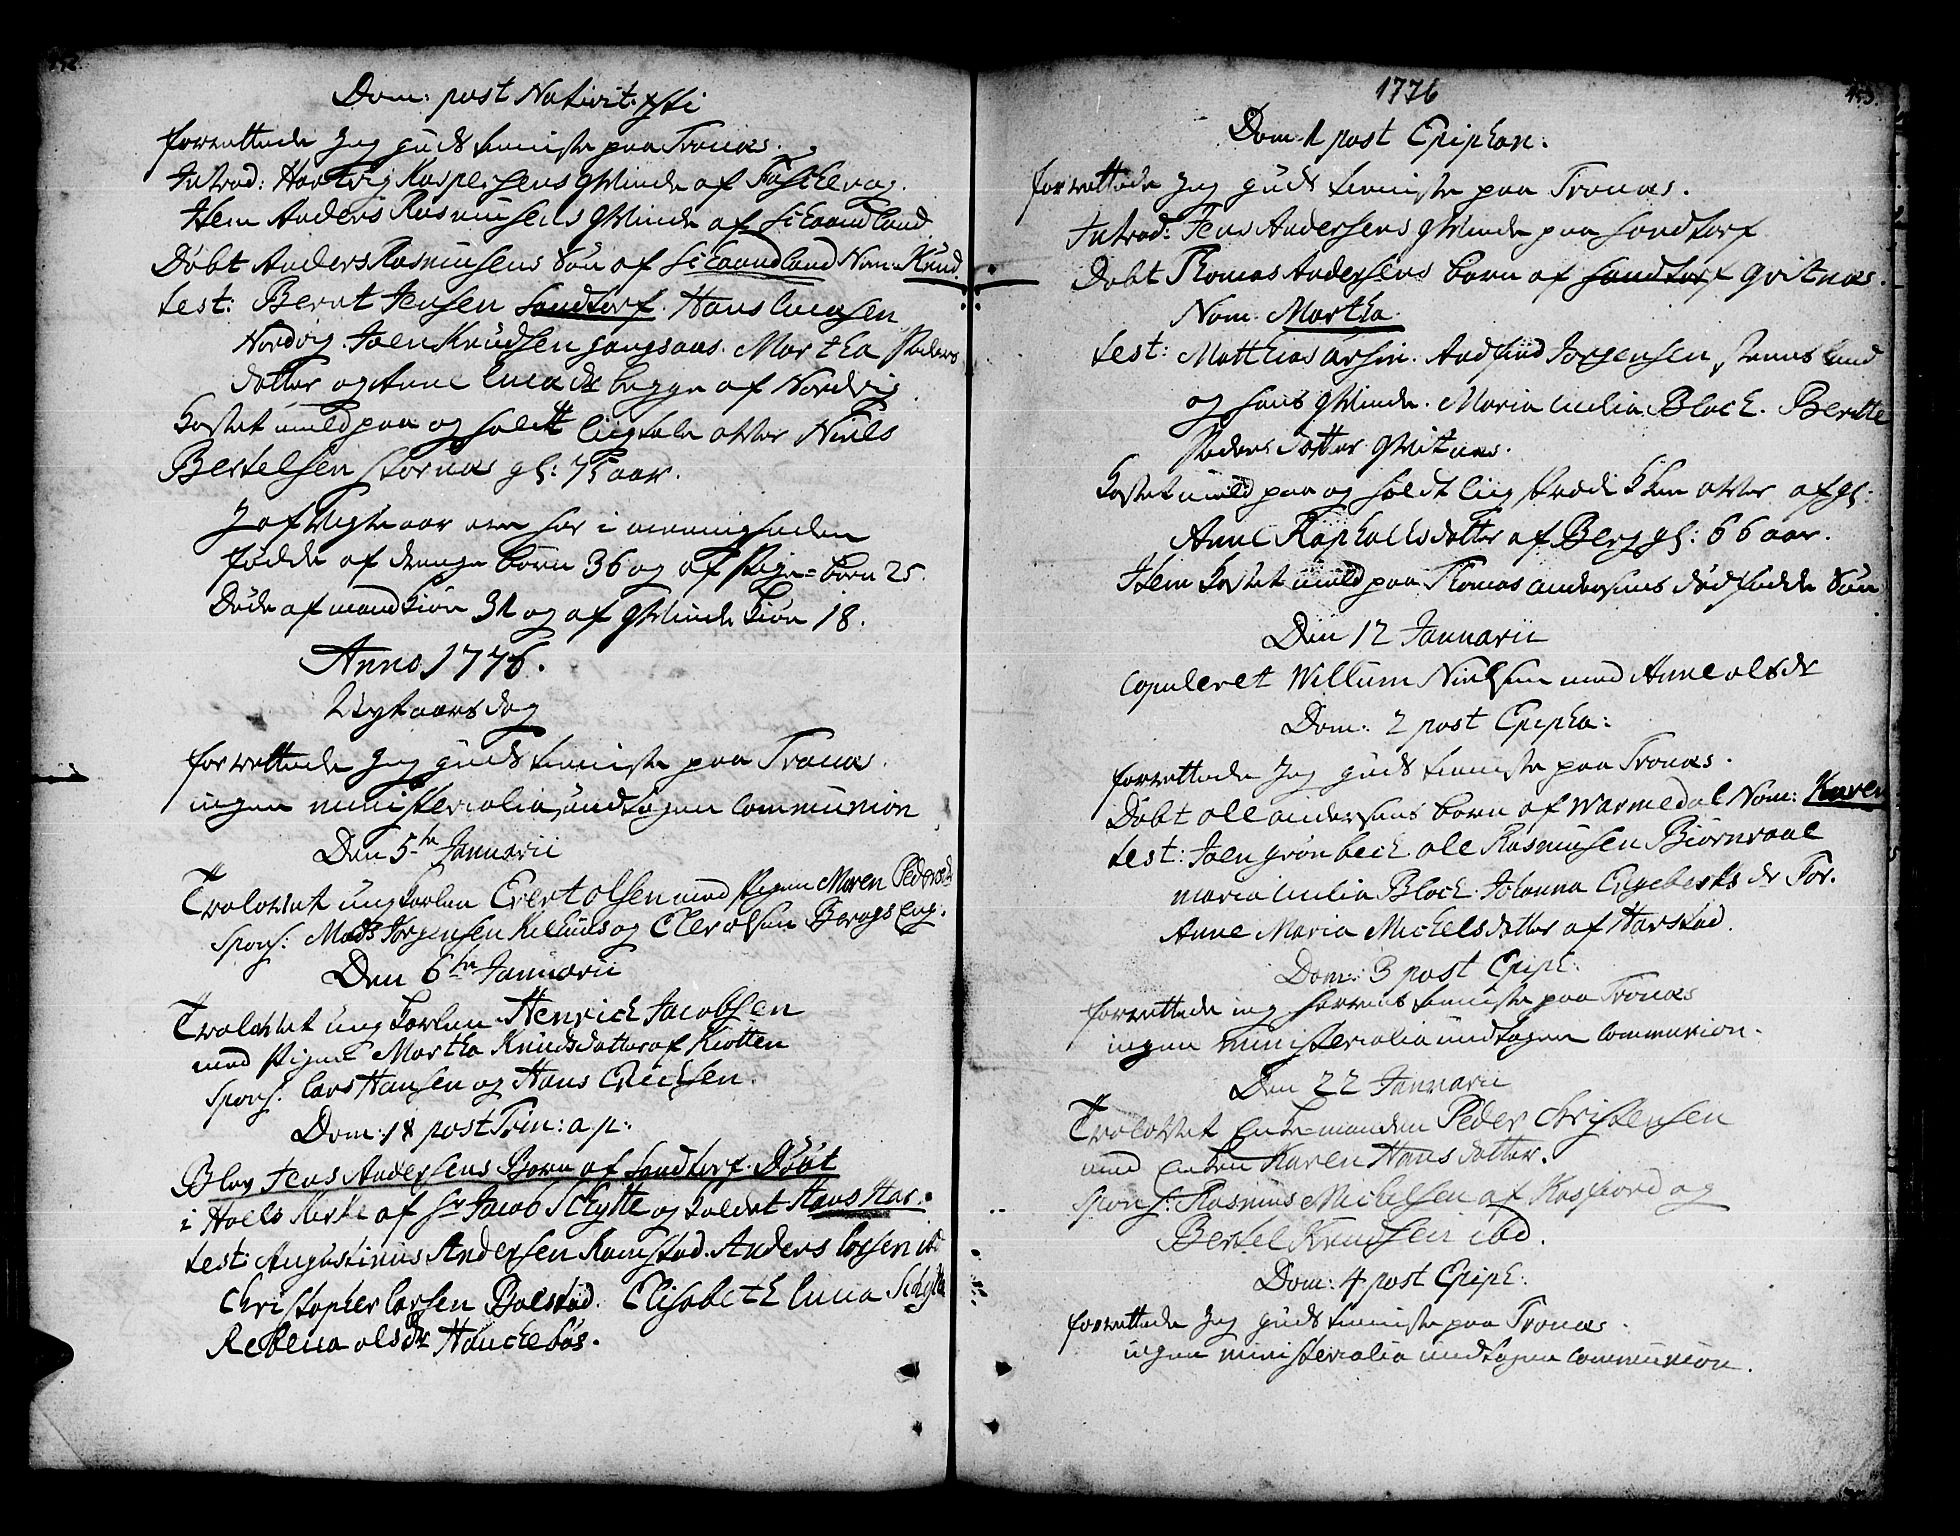 Dom: post Nativit: xsti
forrettede Jeg guds teniste paa Tronæs.
Introd: Hartvig Kaspersens qvinde af
Item Anders Rasmusens qvinde af
Døbt Anders Rasmusens Søn af Nom: Knud.
test: Bernt Jensen Sandtorf. Hans
Nordvig. Joen Knudsen gangsaas. Martha Peders
datter og Anne begge af Nordvig
Kastet muld paa og holdt liigtale over Niels
Bertelsen Stornæs gl: 75 aar.
J afvigte aar ere her i meenigheden
fødde af drenge børn 36 og af Pige-børn 25.
Døde af mandkiøn 31 og af qvinde kiøn 18.
Anno 1776.
Nytaarsdag
forrettede Jeg guds teniste paa Tronæs.
ingen ministerialia, undtagen Communion
Den 5te Januarii
Trolovet ungkarlen Evert olsen med Pigen Maren Pedersdr
Spons: Mads Jørgensen Kilhuus og Eler olsen Bergs Eng.
Den 6te Januarii
Trolovet ungkarlen Henrich Jacobsen
med Pigen Martha Knudsdatter af Kiotten
Spons. Lars Hansen og Hans Erichsen.
Dom: 18 post Trin: a.p:
Blev Jens Andersens Barn af Sandtorf Døbt
i Hols Kirke af Hr Jacob Schytte og kaldet Hans Har.
test: Augustinus Andersen Ramstad. Anders Larsen ibd
Christopher Larsen Bolstad. Elisabeth Schytte
olsdr
1776
Dom: 1 post Epiphan:
forrettede Jeg guds teniste paa Tronæs.
Introd: Jens Andersens qvinde paa Sandtorf
Døbt Thomas Andersens barn af Sandtorf qvitnæs.
Nom. Martha.
test: Matthias Andfind Jørgensen,
og hans qvinde. Maria Cicilia Block. Beritte
Peders datter qvitnæs.
Kastet muld paa og holdt liig Prædiken over afgl:
Anne Raphaelsdatter af Berg gl: 66 aar.
Item kastet muld paa Thomas andersens dødfødde Søn
Den 12 Januarii
Copuleret Willum Nielsen med Anne olsdr
Dom: 2 post Epipha:
forrettede Jeg guds teniste paa Tronæs.
Døbt ole andersens barn af Warmedal Nom: Karen
test: Joen grønbech. ole Rasmusen Biørnraae
maria Cicilia Block. Johanna Engebertsdr
Anne Maria Michelsdatter af Harstad.
Dom: 3 post Epiph:
forrettede ieg Herrens teniste paa Tronæs
ingen ministerialia undtagen Communion.
Den 22 Januarii
Trolovet Enke-manden Peder Christensen
med Enken Karen Hans datter.
Spons: Rasmus Michelsen af Kasfiord og
Bertel Knudsen ibd.
Dom: 4 post Epiph:
forrettede Jeg guds teniste paa Tronæs.
ingen ministerialia undtagen Communion.